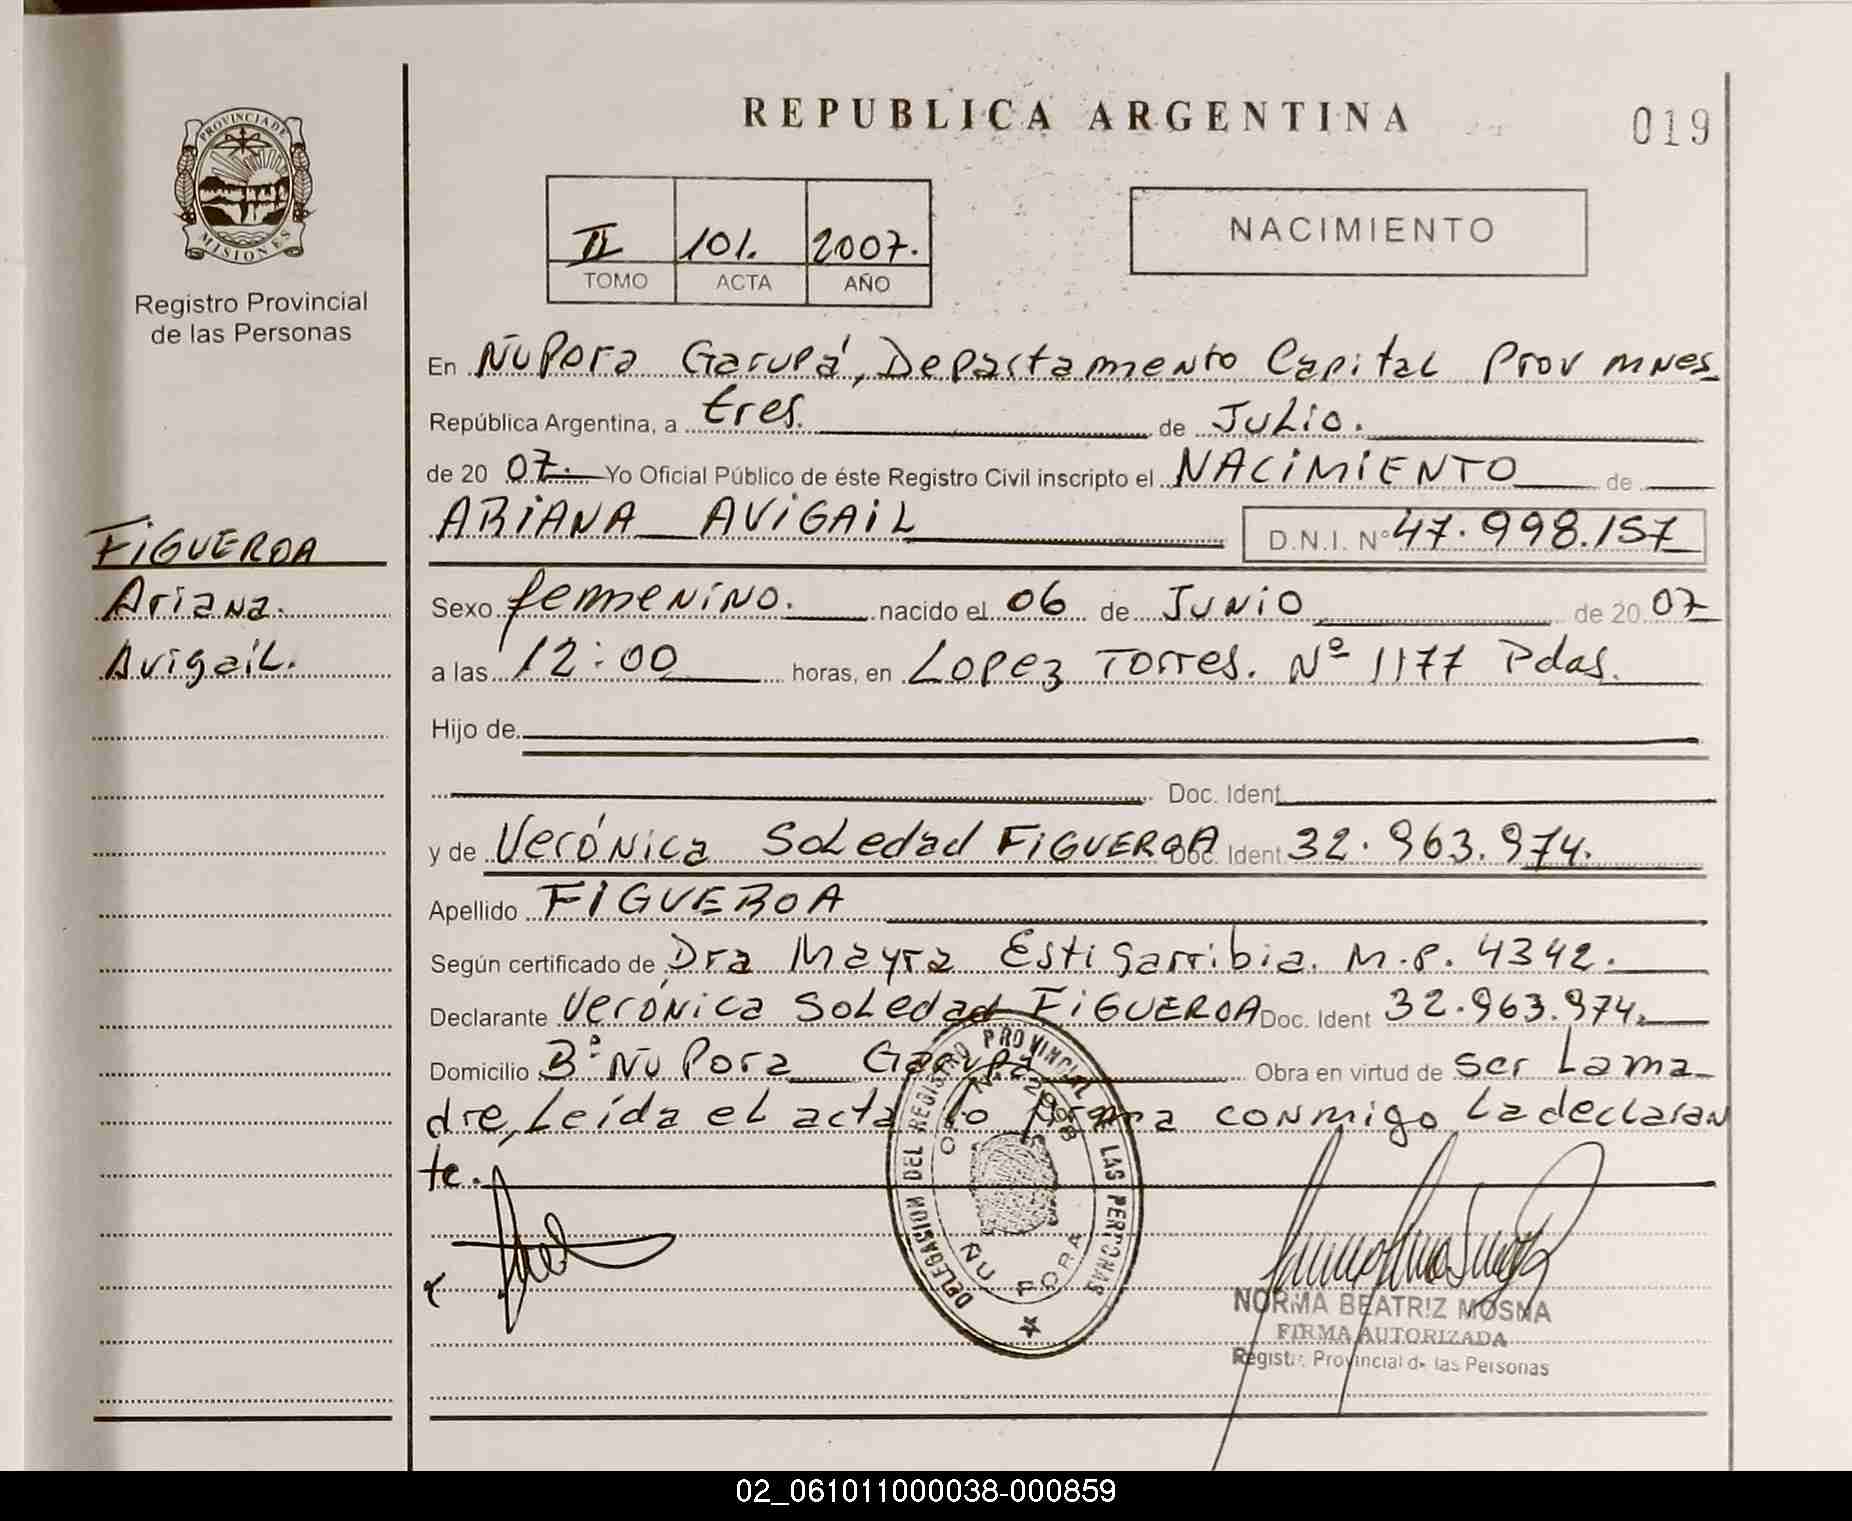 REPUBLICA ARGENTINA
019
PROVINCIA DE
MISIONES
Registro Provincial
de las Personas
II 101. 2007.
TOMO ACTA AÑO
NACIMIENTO
En Ñu Pora Garupá, Departamento Capital Prov mnes
República Argentina, a tres. de Julio.
de 20 07. Yo Oficial Público de éste Registro Civil inscripto el NACIMIENTO de
ARIANA AVIGAIL D.N.I. N° 47.998.157
FIGUEROA
Ariana.
Avigail.
Sexo femenino. nacido el 06 de Junio de 20 07
a las 12:00 horas, en Lopez Torres. Nº 1177 Pdas.
Hijo de
Doc. Ident
y de Verónica Soledad FIGUEROA Doc. Ident 32.963.974.
Apellido FIGUEROA
Según certificado de Dra Mayra Estigarribia. M.P. 4342.
Declarante Verónica Soledad FIGUEROA Doc. Ident 32.963.974.
Domicilio Bº Ñu Pora Garupá Obra en virtud de ser La ma
dre, Leída el acta lo firma conmigo La declaran
te.
DELEGASION DEL REGISTRO PROVINCIAL DE LAS PERSONAS
ÑU PORA
NORMA BEATRIZ MOSNA
FIRMA AUTORIZADA
Registro Provincial de las Personas
02_061011000038-000859